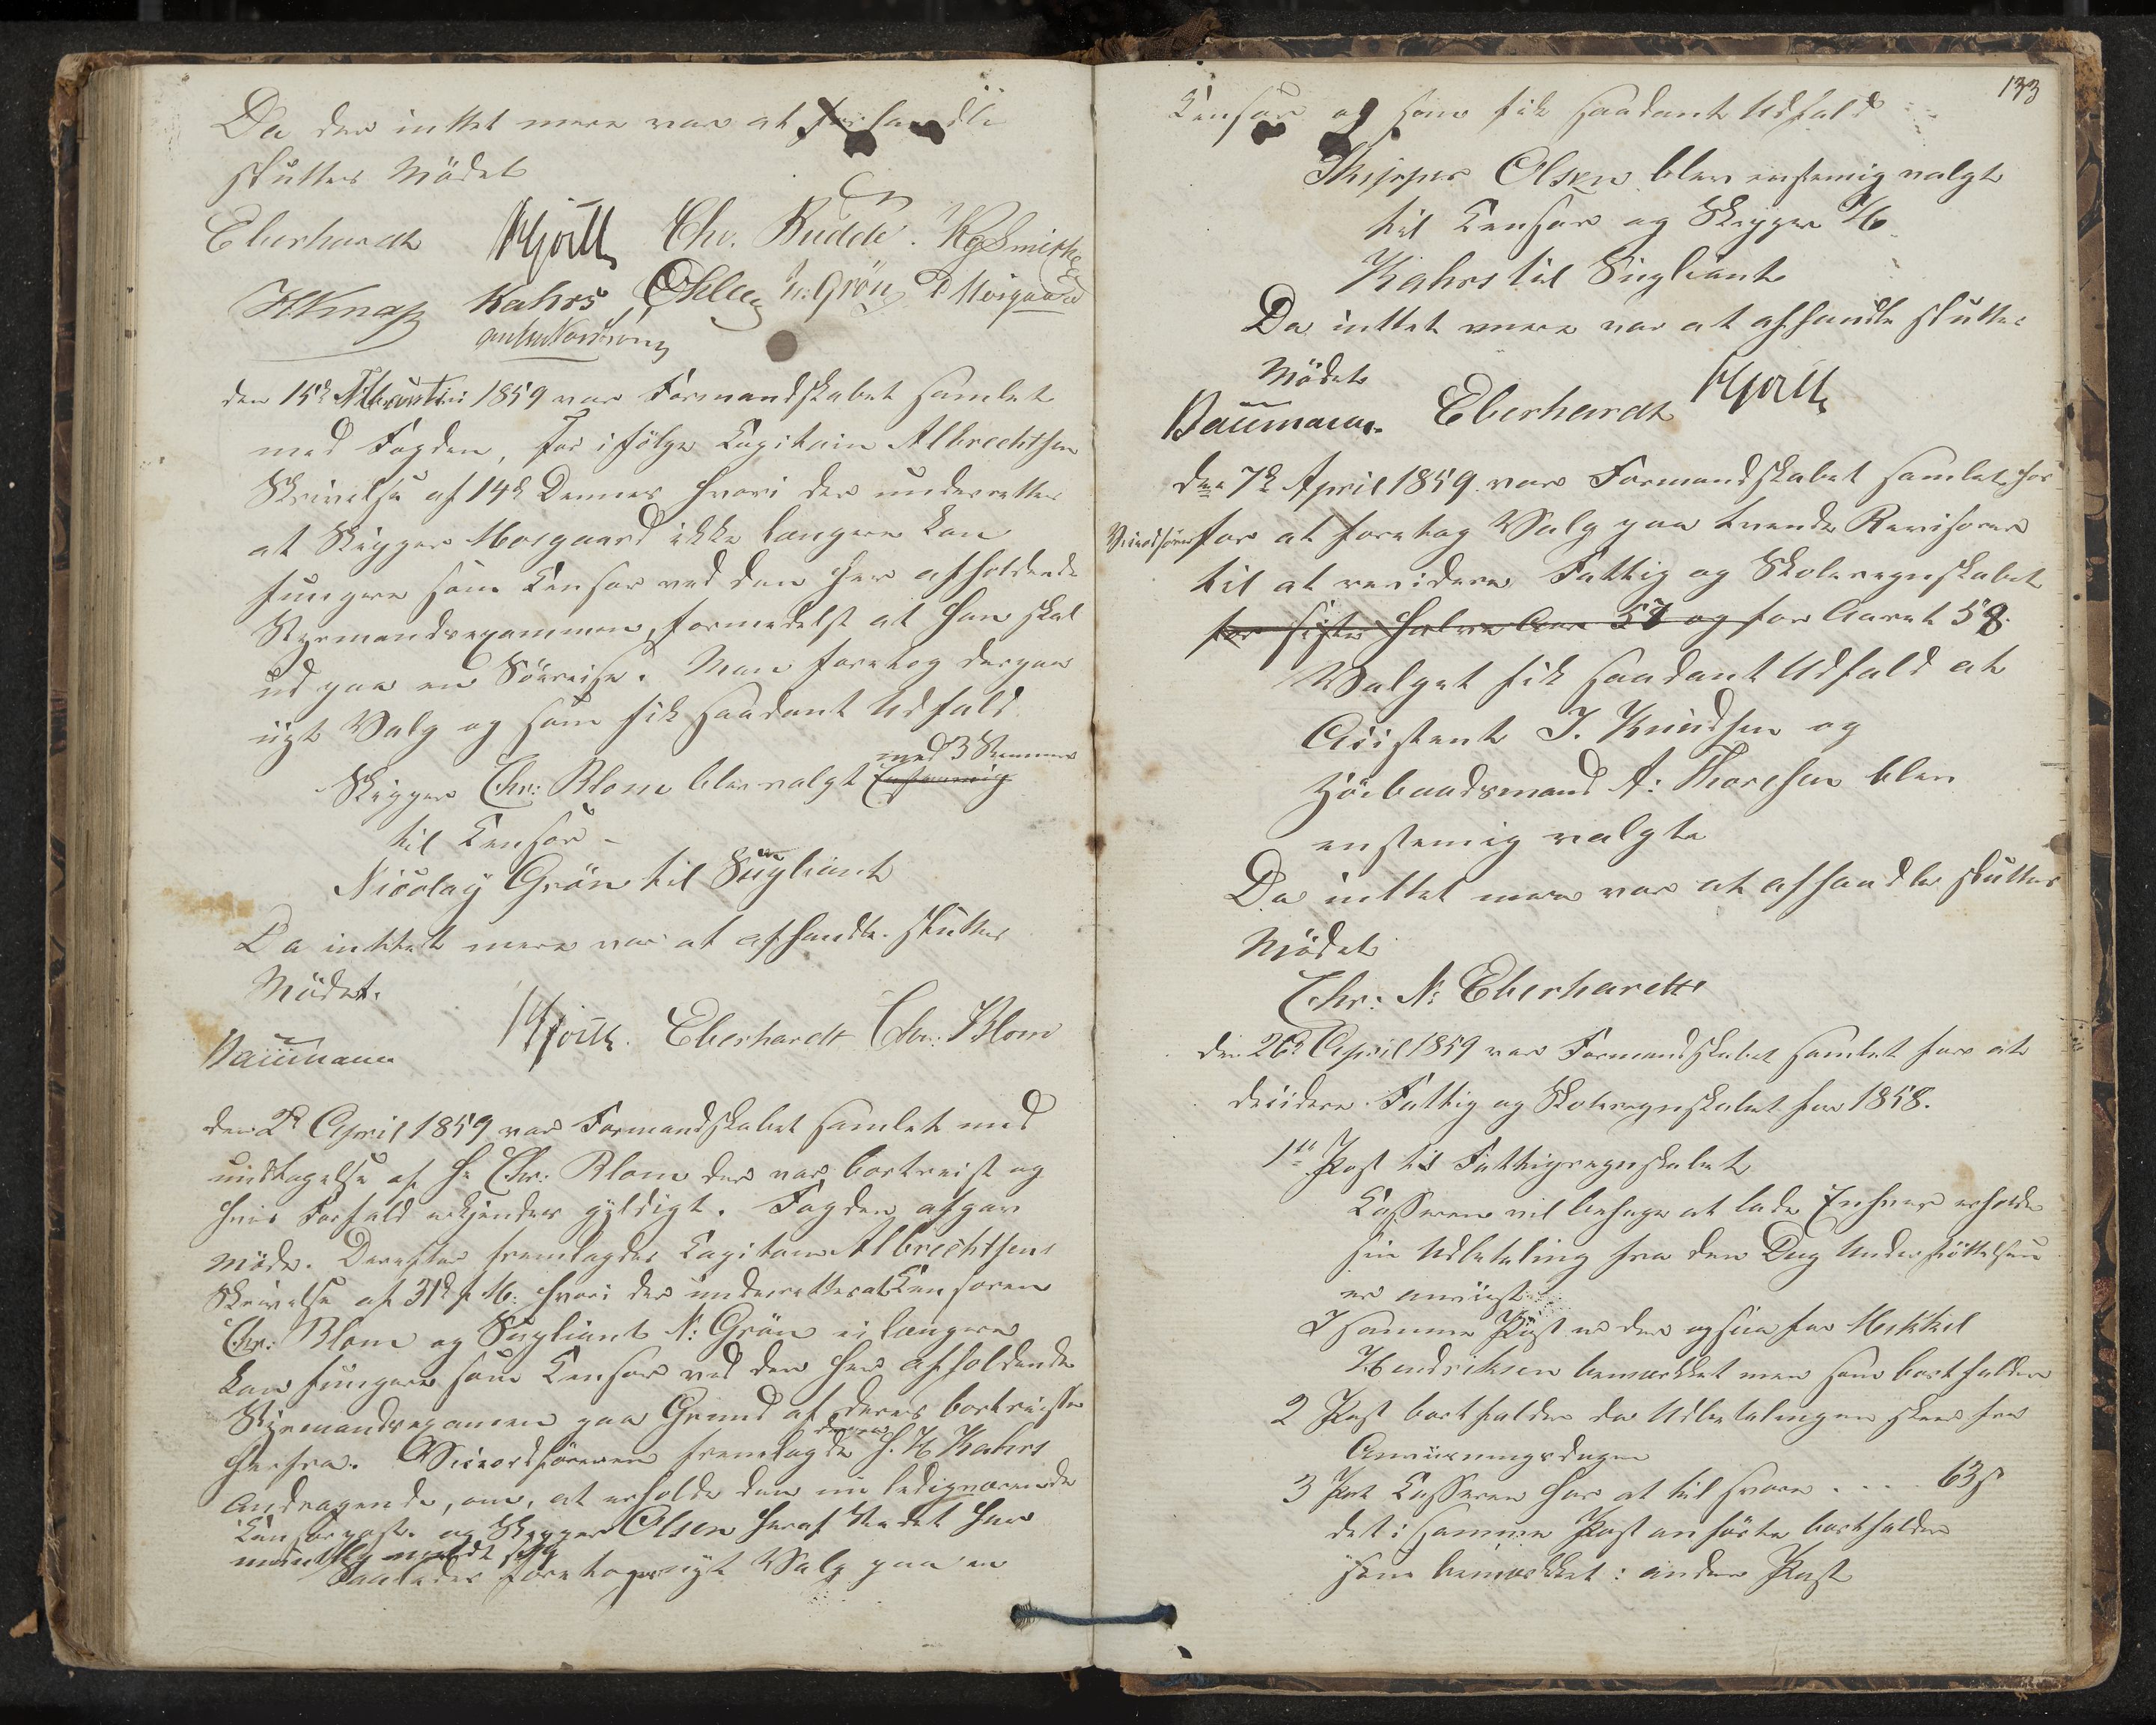 Da der intet mere var at forhandle
sluttes Mödet
Eberhardt Hjorth Chr. Budde.
H Knap Kahrs N: Grön P Mosgaard
den 15d 1859 var Formandskabet samlet
med Fogden, for ifölge Capitain Albrechtsen
Skrivelse af 14d Dennes hvori der underrettes
at Skipper Mosgaard ikke længere kan
fungere som Censor ved den her afholdende
Styrmandsexammen, formedelst at han skal
ud paa en Söereise. Man foretog derpaa
nyt Valg og som fik saadant Udfald
med 3 Stemmer
Skipper Chr: Blom blev valgt Enstemig
til Censor -
Nicolay Grön til Supliant
Da inttet mere var at afhandle sluttes
Mödet.
Baumann Hjorth. Eberhardt Chr. Blom
den 2d April 1859 var Formandskabet samlet med
undtagelse af Hr Chr: Blom der var bortreist og
hvis Forfald erkjendes gyldigt. Fogden afgav
Möde. Derefter fremlagdes Capitain Albrechtsens
Skrivelse af 31d f. M. hvori der underrettes at Censoren
Chr: Blom og Supliant N: Grön ei længere
kan fungere som Censor ved den her afholdende
Styrmandsexamen paa Grund af deres bortreise
herfra. Viceordföreren fremlagde H. H Kahrs
Andragende, om, at erholde den nu ledigværende
Censorpost. og Skipper Olsen heraf Stedet har
mundtlig meldt sig
Saaledes foretoges nyt Valg paa en
133
Censor og som fik saadant Udfald
Skipper Olsen blev enstemig valgt
til Censor og Skipper H
Kahrs til Supliant
Da inttet mere var at afhandle sluttes
Mödet
Baumann. Eberhardt Hjorth
den 7d April 1859 var Formandskabet samlet hos
Viceordförer for at foretag Valg paa tvende Revisorer
til at revidere Fattig og Skoleregnskabet
for sidste halve Aar 57 og for Aaret 58.
Valget fik saadant Udfald at
Assistent J. Knudsen og
Höibaadsmand A: Thoresen blev
enstemig valgte
Da inttet mere var at afhandle sluttes
Mödet
Chr: N: Eberhardt
den 26d April 1859 var Formandskabet samlet for at
decidere Fattig og Skoleregnskabet for 1858.
1te Post til Fattigregnskabet
Casseren vil behage at lade Enhver erholde
sin Udbetaling fra den Dag Understöttelsen
er anviist.
I samme Post er der ogsaa for Mikkel
Hendriksen bemærkket men som bortfalder
2 Post bortfalder da Udbetalingen skeer fra
Anviisningsdagen
3 Post Casseren har at til svare . . . 63 s
det i samme Post anförte bortfalder
som bemærkket i anden Post